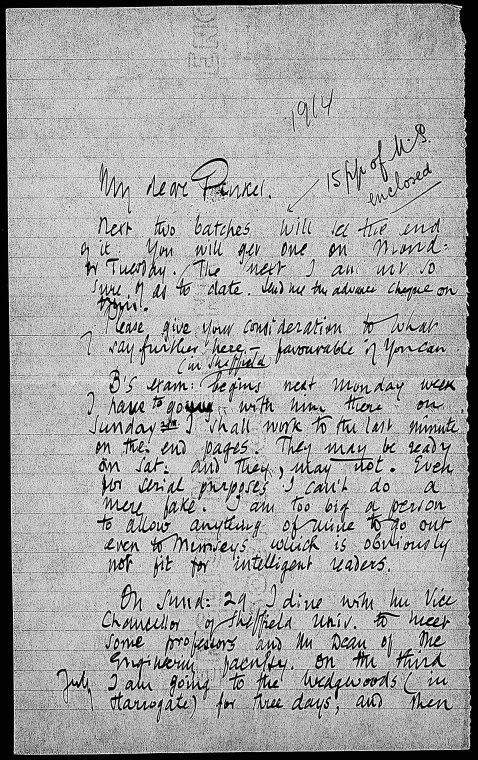 1914
15 pp of M.S.
enclosed
My dear Pinker.
Next two batches will see the end
of it. You will get one on Mond:
or Tuesday. The next I am not so
sure of as to date. Send me the advance cheque on
Please give your consideration to what
I say further here – favourable if you can.
(in Sheffield)
B's exam: begins next Monday week
I have to go with him there on
Sunday I shall work to the last minute
on the end pages. They may be ready
on Sat: and they may not. Even
for serial purposes I can't do a
mere fake. I am too big a person
to allow anything of mine to go out
even to Munseys which is obviously
not fit for intelligent readers.
On Sund: 29 I dine with the Vice
Chancellor of Sheffield Univ. to meet
some professors and the Dean of the
Engineering faculty. On the third
July I am going to the Wedgwoods (in
Harrogate) for three days, and then